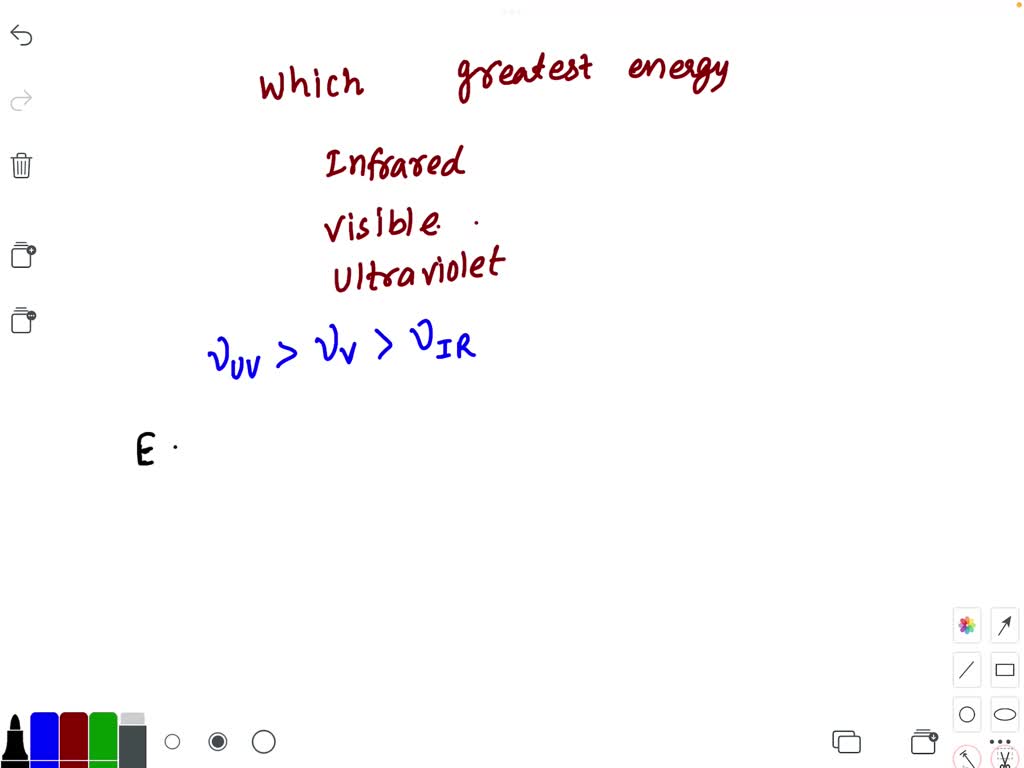 Which greatest energy
Infrared
visible
Ultraviolet
ν_UV > ν_V > ν_IR
E